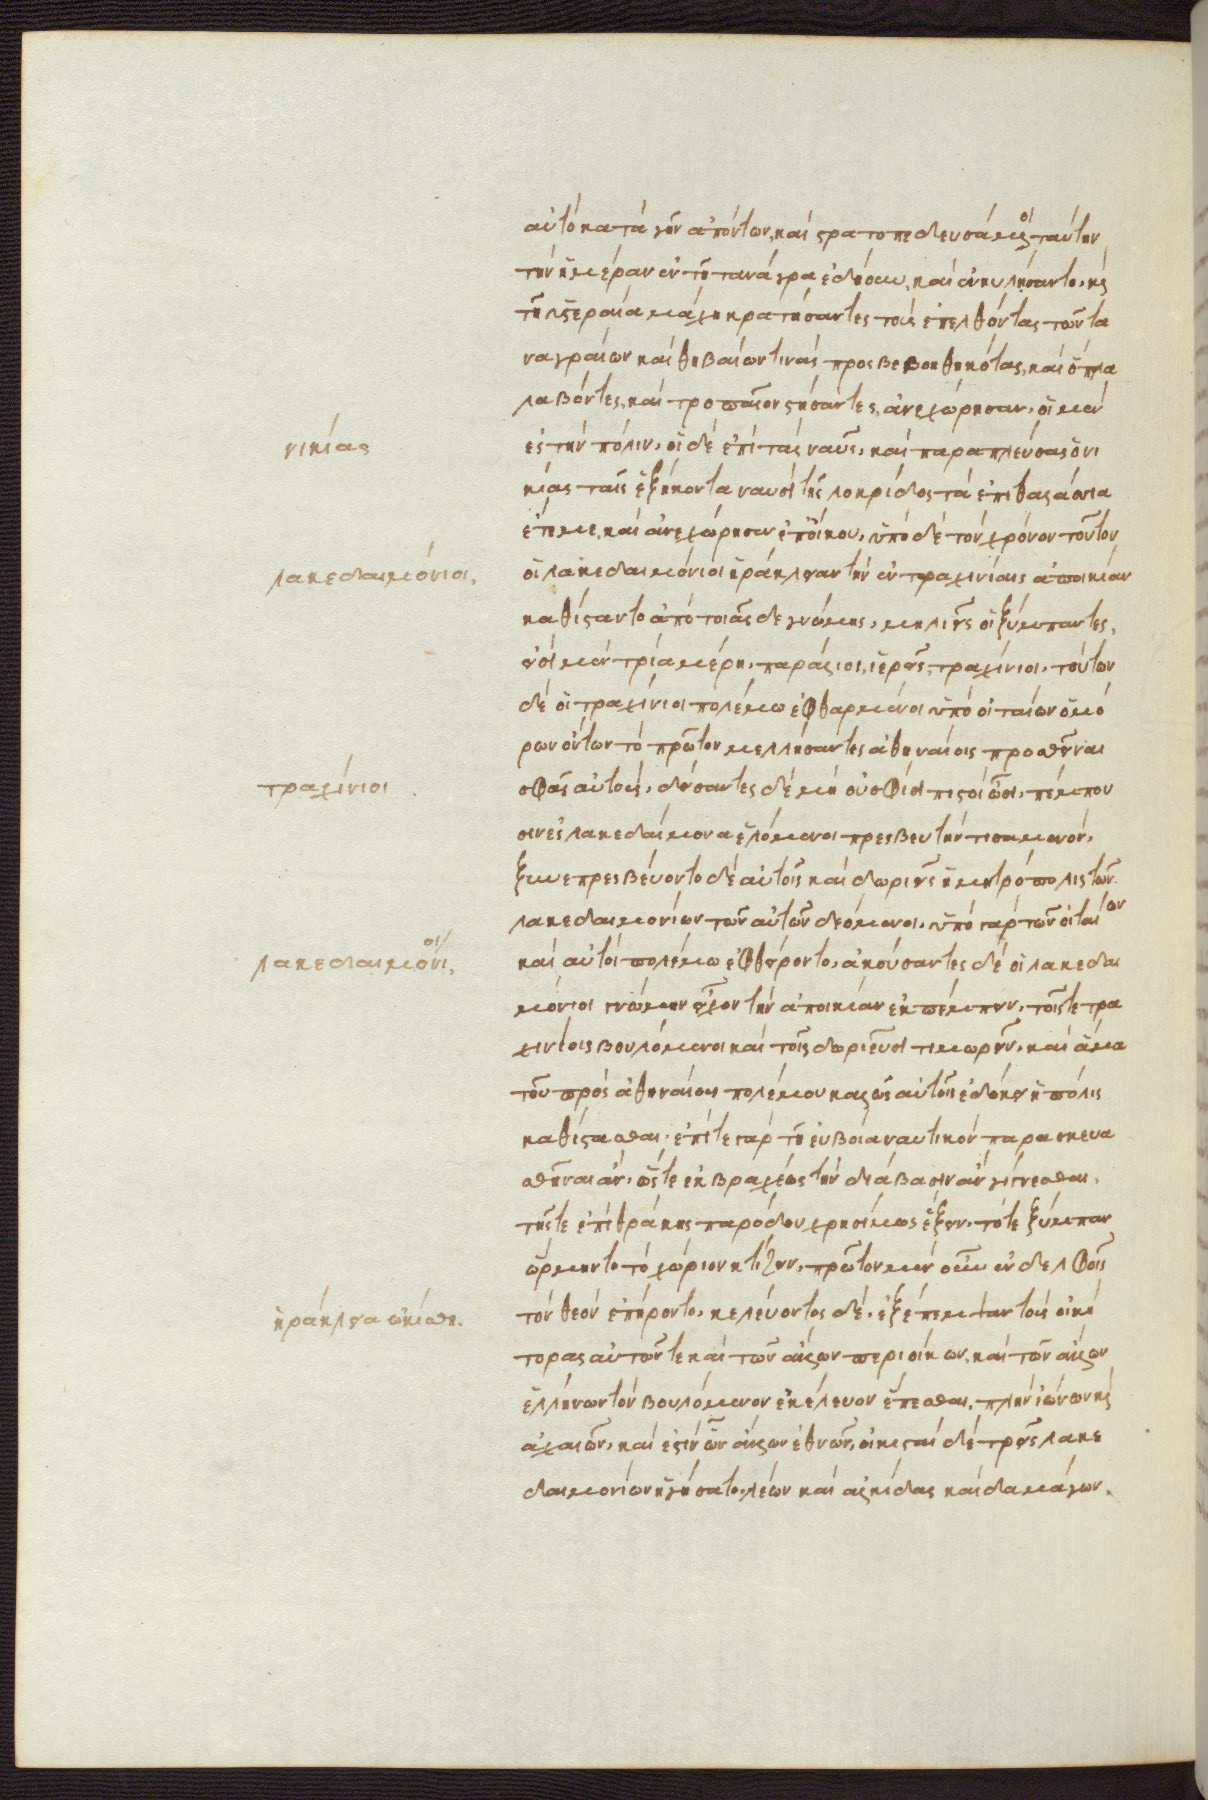 αὐτὸ κατὰ γῆν ἀπόντων, καὶ στρατοπεδευσάμενοι ταύτην
τὴν ἡμέραν ἐν τῇ τανάγρα ἐδῄουν, καὶ ἐνηυλίσαντο. καὶ
τῇ ὑστεραία μάχη κρατήσαντες τοὺς ἐπελθόντας τῶν τα
ναγραίων καὶ θηβαίων τινὰς προσβεβοηθηκότας, καὶ ὅπλα
λαβόντες, καὶ τροπαῖον στήσαντες, ἀνεχώρησαν. οἱ μὲν
νικίας
ἐς τὴν πόλιν, οἱ δὲ ἐπὶ τὰς ναῦς. καὶ παραπλεύσας ὁ νι
κίας ταῖς ἑξήκοντα ναυσὶ τῆς λοκρίδος τὰ ἐπιθαλάσσια
ἔτεμε, καὶ ἀνεχώρησεν ἐπ' οἴκου. ὑπὸ δὲ τὸν χρόνον τοῦτον
λακεδαιμόνιοι,
οἱ λακεδαιμόνιοι ἡράκλειαν τὴν ἐν τραχινίαις ἀποικίαν
καθίσταντο ἀπὸ τοιᾶσδε γνώμης. μηλιεῖς οἱ ξύμπαντες,
εἰσὶ μὲν τρία μέρη. παράλιοι, ἱερεῖς, τραχίνιοι. τούτων
δὲ οἱ τραχίνιοι πολέμω ἐφθαρμένοι ὑπὸ οἰταίων ὁμό
ρων ὄντων τὸ πρῶτον μελλήσαντες ἀθηναίοις προσθεῖναι
τραχίνιοι
σφᾶς αὐτούς, δείσαντες δὲ μὴ οὐ σφίσι πιστοὶ ὦσι, πέμπου
σιν ἐς λακεδαίμονα ἑλόμενοι πρεσβευτὴν τισαμενόν.
ξυνεπρεσβεύοντο δὲ αὐτοῖς καὶ δωριεῖς ἡ μητρόπολις τῶν
λακεδαιμονίων τῶν αὐτῶν δεόμενοι. ὑπὸ γὰρ τῶν οἰταίων
λακεδαιμόνιοι,
καὶ αὐτοὶ πολέμω ἐφθείροντο. ἀκούσαντες δὲ οἱ λακεδαι
μόνιοι γνώμην εἶχον τὴν ἀποικίαν ἐκπέμπειν. τοῖς τε τρα
χινίοις βουλόμενοι καὶ τοῖς δωριεῦσι τιμωρεῖν. καὶ ἅμα
τοῦ πρὸς ἀθηναίους πολέμου καλῶς αὐτοῖς ἐδόκει ἡ πόλις
καθίστασθαι. ἐπί τε γὰρ τῇ εὐβοία ναυτικὸν παρασκευα
σθῆναι ἂν, ὥστε ἐκ βραχέως τὴν διάβασιν ἂν γίγνεσθαι.
τῆς τε ἐπὶ θράκης παρόδου χρησίμως ἕξειν. τό τε ξύμπαν
ὥρμηντο τὸ χωρίον κτίζειν. πρῶτον μὲν οὖν ἐν δελφοῖς
ἡράκλεια ᾠκίσθη.
τὸν θεὸν ἐπήροντο. κελεύοντος δὲ, ἐξέπεμψαν τοὺς οἰκή
τορας αὐτῶν τε καὶ τῶν ἄλλων περιοίκων. καὶ τῶν ἄλλων
ἑλλήνων τὸν βουλόμενον ἐκέλευον ἕπεσθαι, πλὴν ἰώνων καὶ
ἀχαιῶν, καὶ ἔστιν ὧν ἄλλων ἐθνῶν. οἰκισταὶ δὲ τρεῖς λακε
δαιμονίων ἡγήσατο, λέων καὶ ἀλκίδας καὶ δαμάγων.